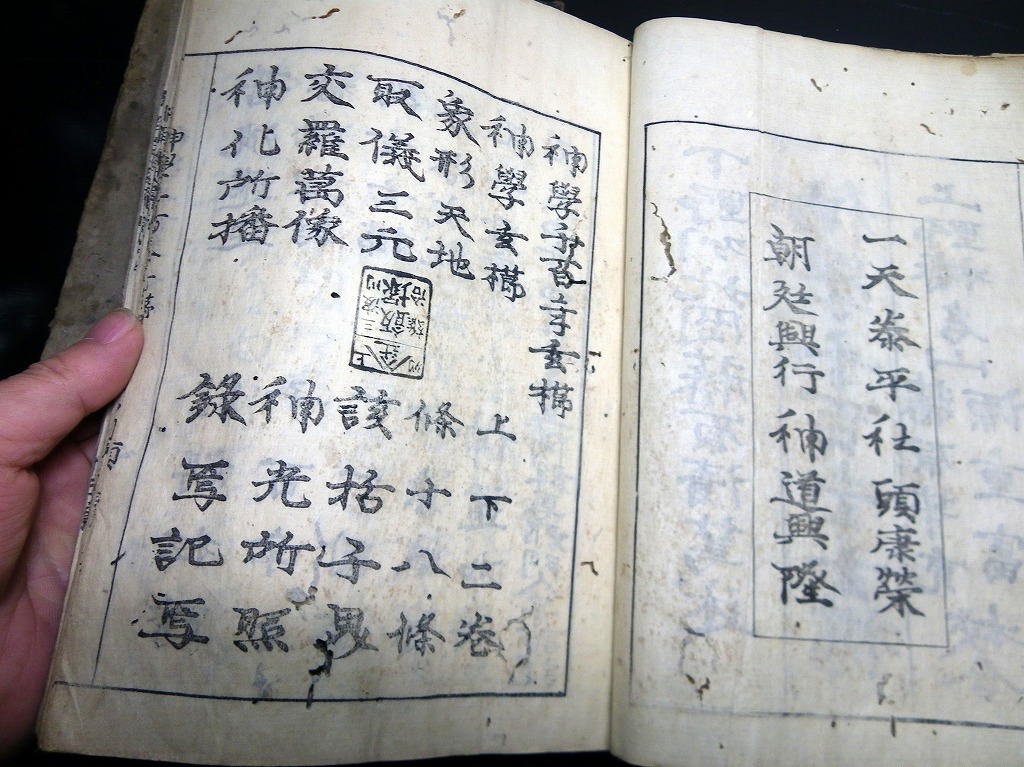 一天泰平社頭康榮
朝廷興行神道興隆
神學
神學玄
上下二卷
象形天地
條十八條
取儀三元
該括子
交羅萬像
神光所照
神化所播
錄写記写